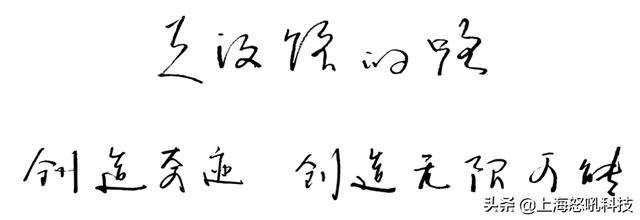 走没馀的路
创造奇迹 创造无限可能
头条 @上海怒吼科技